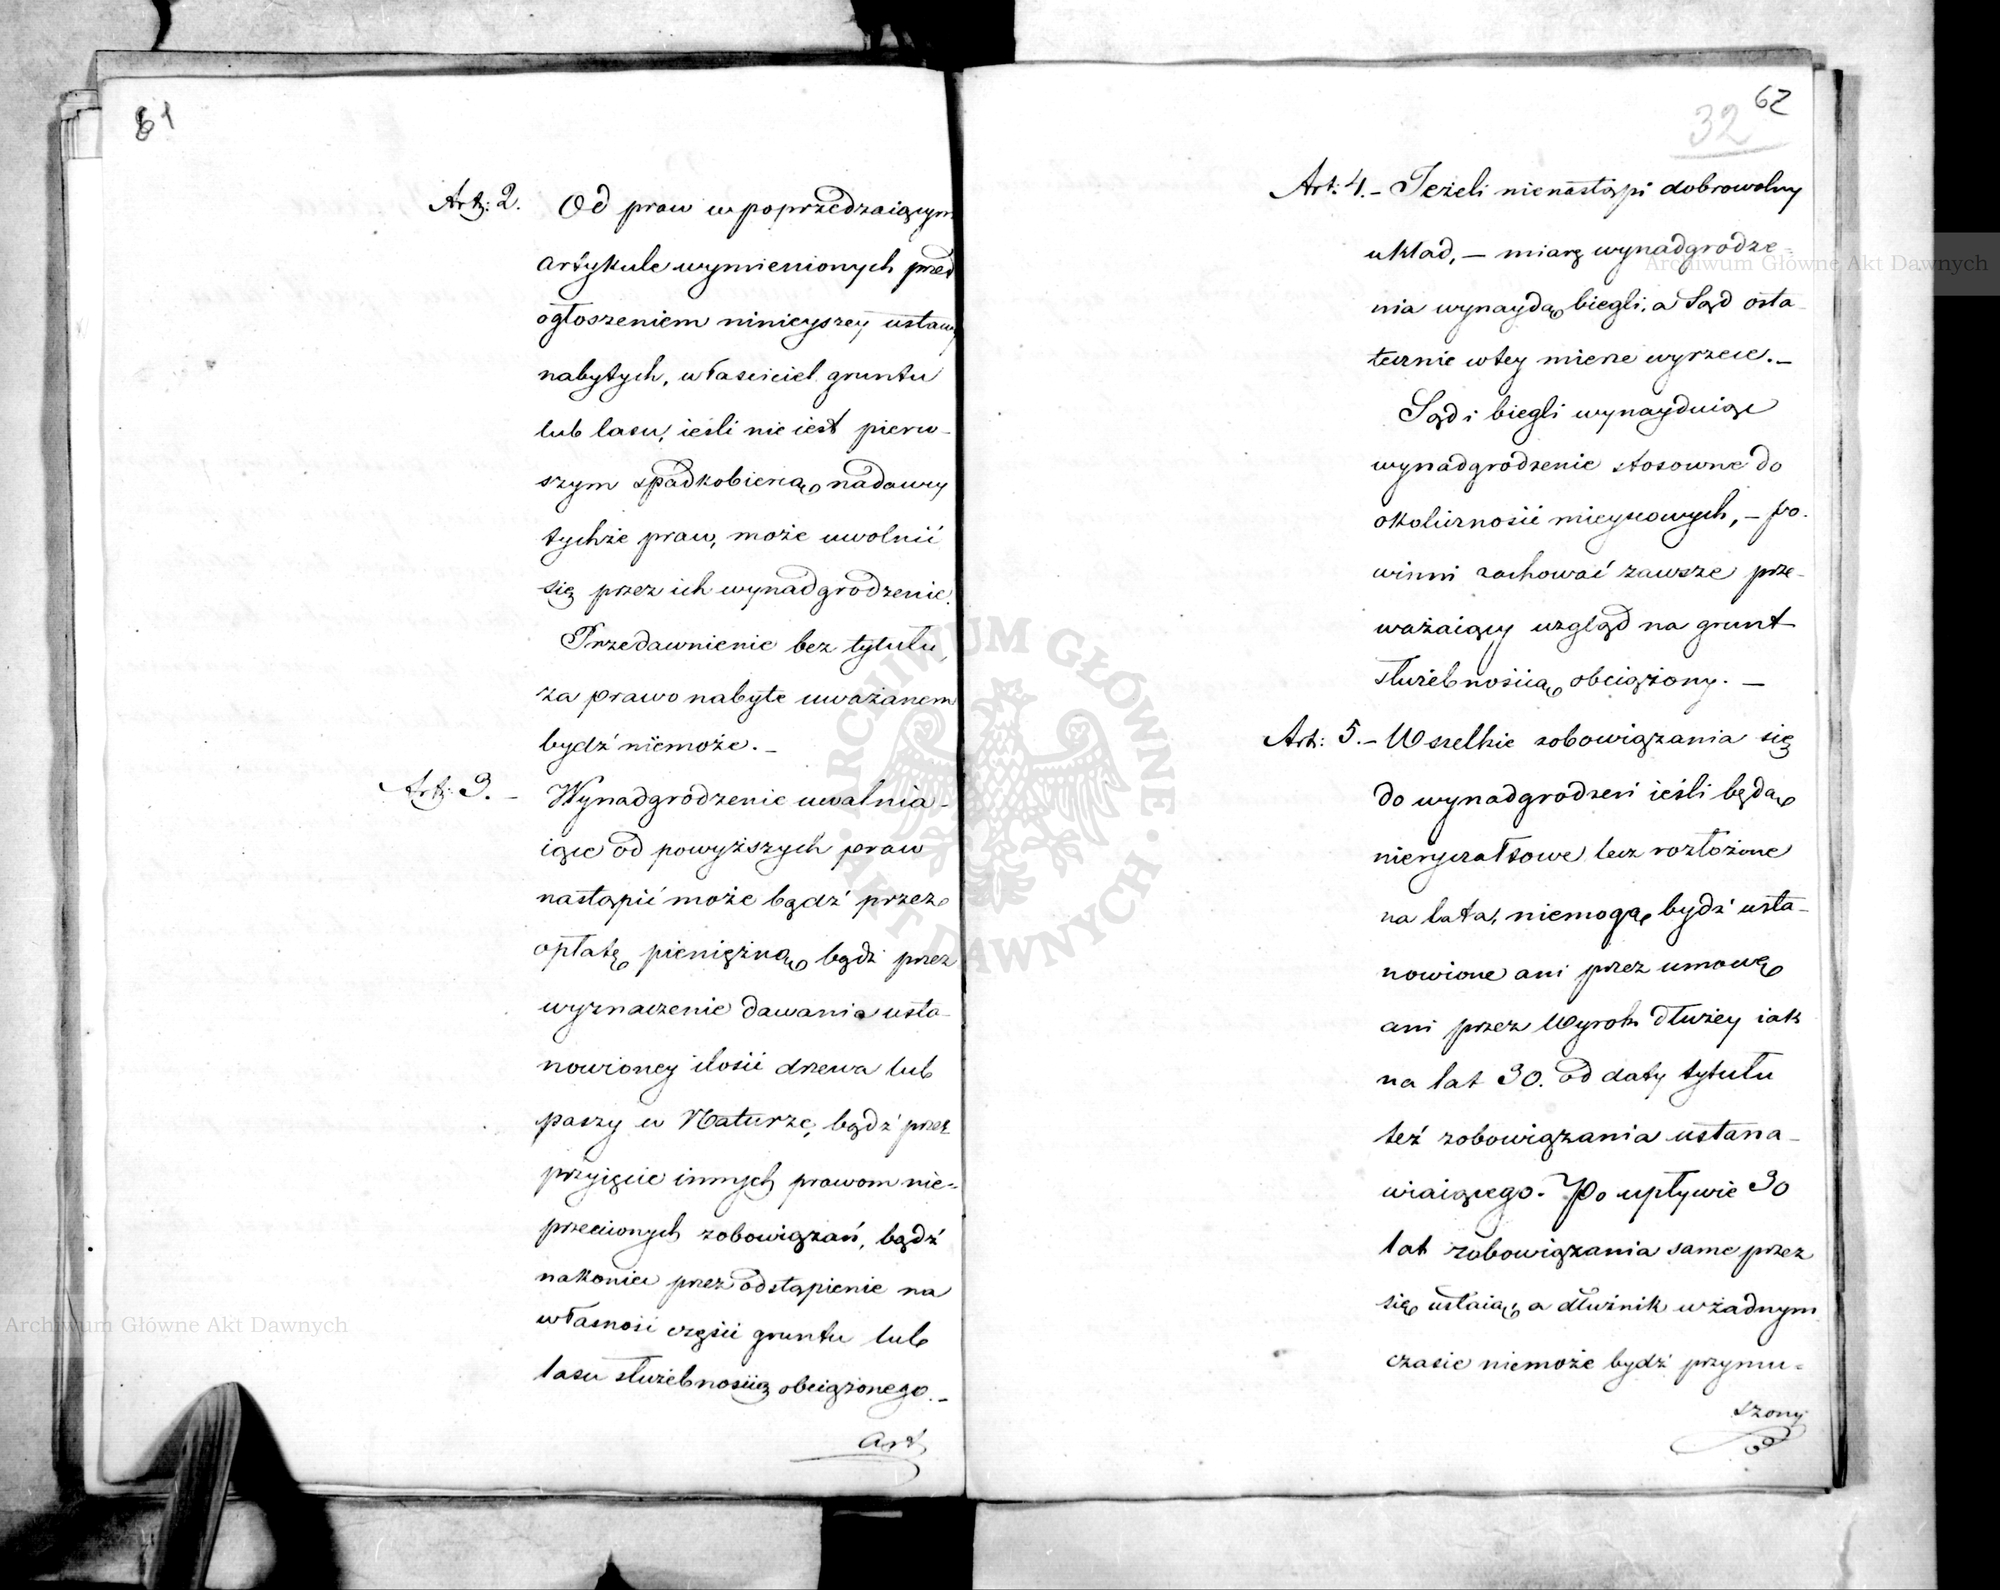 61
Art: 2. Od praw w poprzedzaiącym
artykule wymienionych przed
ogłoszeniem ninieyszey ustawy
nabytych, właściciel gruntu
lub lasu, ieśli nie iest pierw-
szym spadkobiercą nadawcy
tychże praw, może uwolnić
się przez ich wynadgrodzenie.
Przedawnienie bez tytułu,
za prawo nabyte uważanem
bydź niemoże. –
Art: 3. – Wynadgrodzenie uwalnia-
iące od powyższych praw
nastąpić może bądź przez
opłatę pieniężną bądź przez
wyznaczenie dawania usta-
nowioney ilości drzewa lub
paszy w Naturze, bądź przez
przyięcie innych prawom nie-
przeciwnych zobowiązań, bądź
nakoniec przez odstąpienie na
własność części gruntu lub
lasu służebnością obciążonego. –
Art
62
32
Art: 4. – Jeżeli nienastąpi dobrowolny
układ, – miarę wynadgrodze-
nia wynaydą biegli, a Sąd osta-
tecznie w tey mierze wyrzecze. –
Sąd i biegli wynayduiąc
wynadgrodzenie stosowne do
okoliczności mieyscowych, – po-
winni zachować zawsze prze-
ważaiący wzgląd na grunt
służebnością obciążony. –
Art: 5. – Wszelkie zobowiązania się
do wynadgrodzeń ieśli będą
nieryczałtowe lecz rozłożone
na lata, niemogą bydź usta-
nowione ani przez umowę
ani przez Wyrok dłużey iak
na lat 30. od daty tytułu
też zobowiązania ustana-
wiaiącego. Po upływie 30
lat zobowiązania same przez
się ustaią, a dłużnik w żadnym
czasie niemoże bydź przymu-
szony
Archiwum Główne Akt Dawnych
Archiwum Główne Akt Dawnych
ARCHIWUM GŁÓWNE AKT DAWNYCH